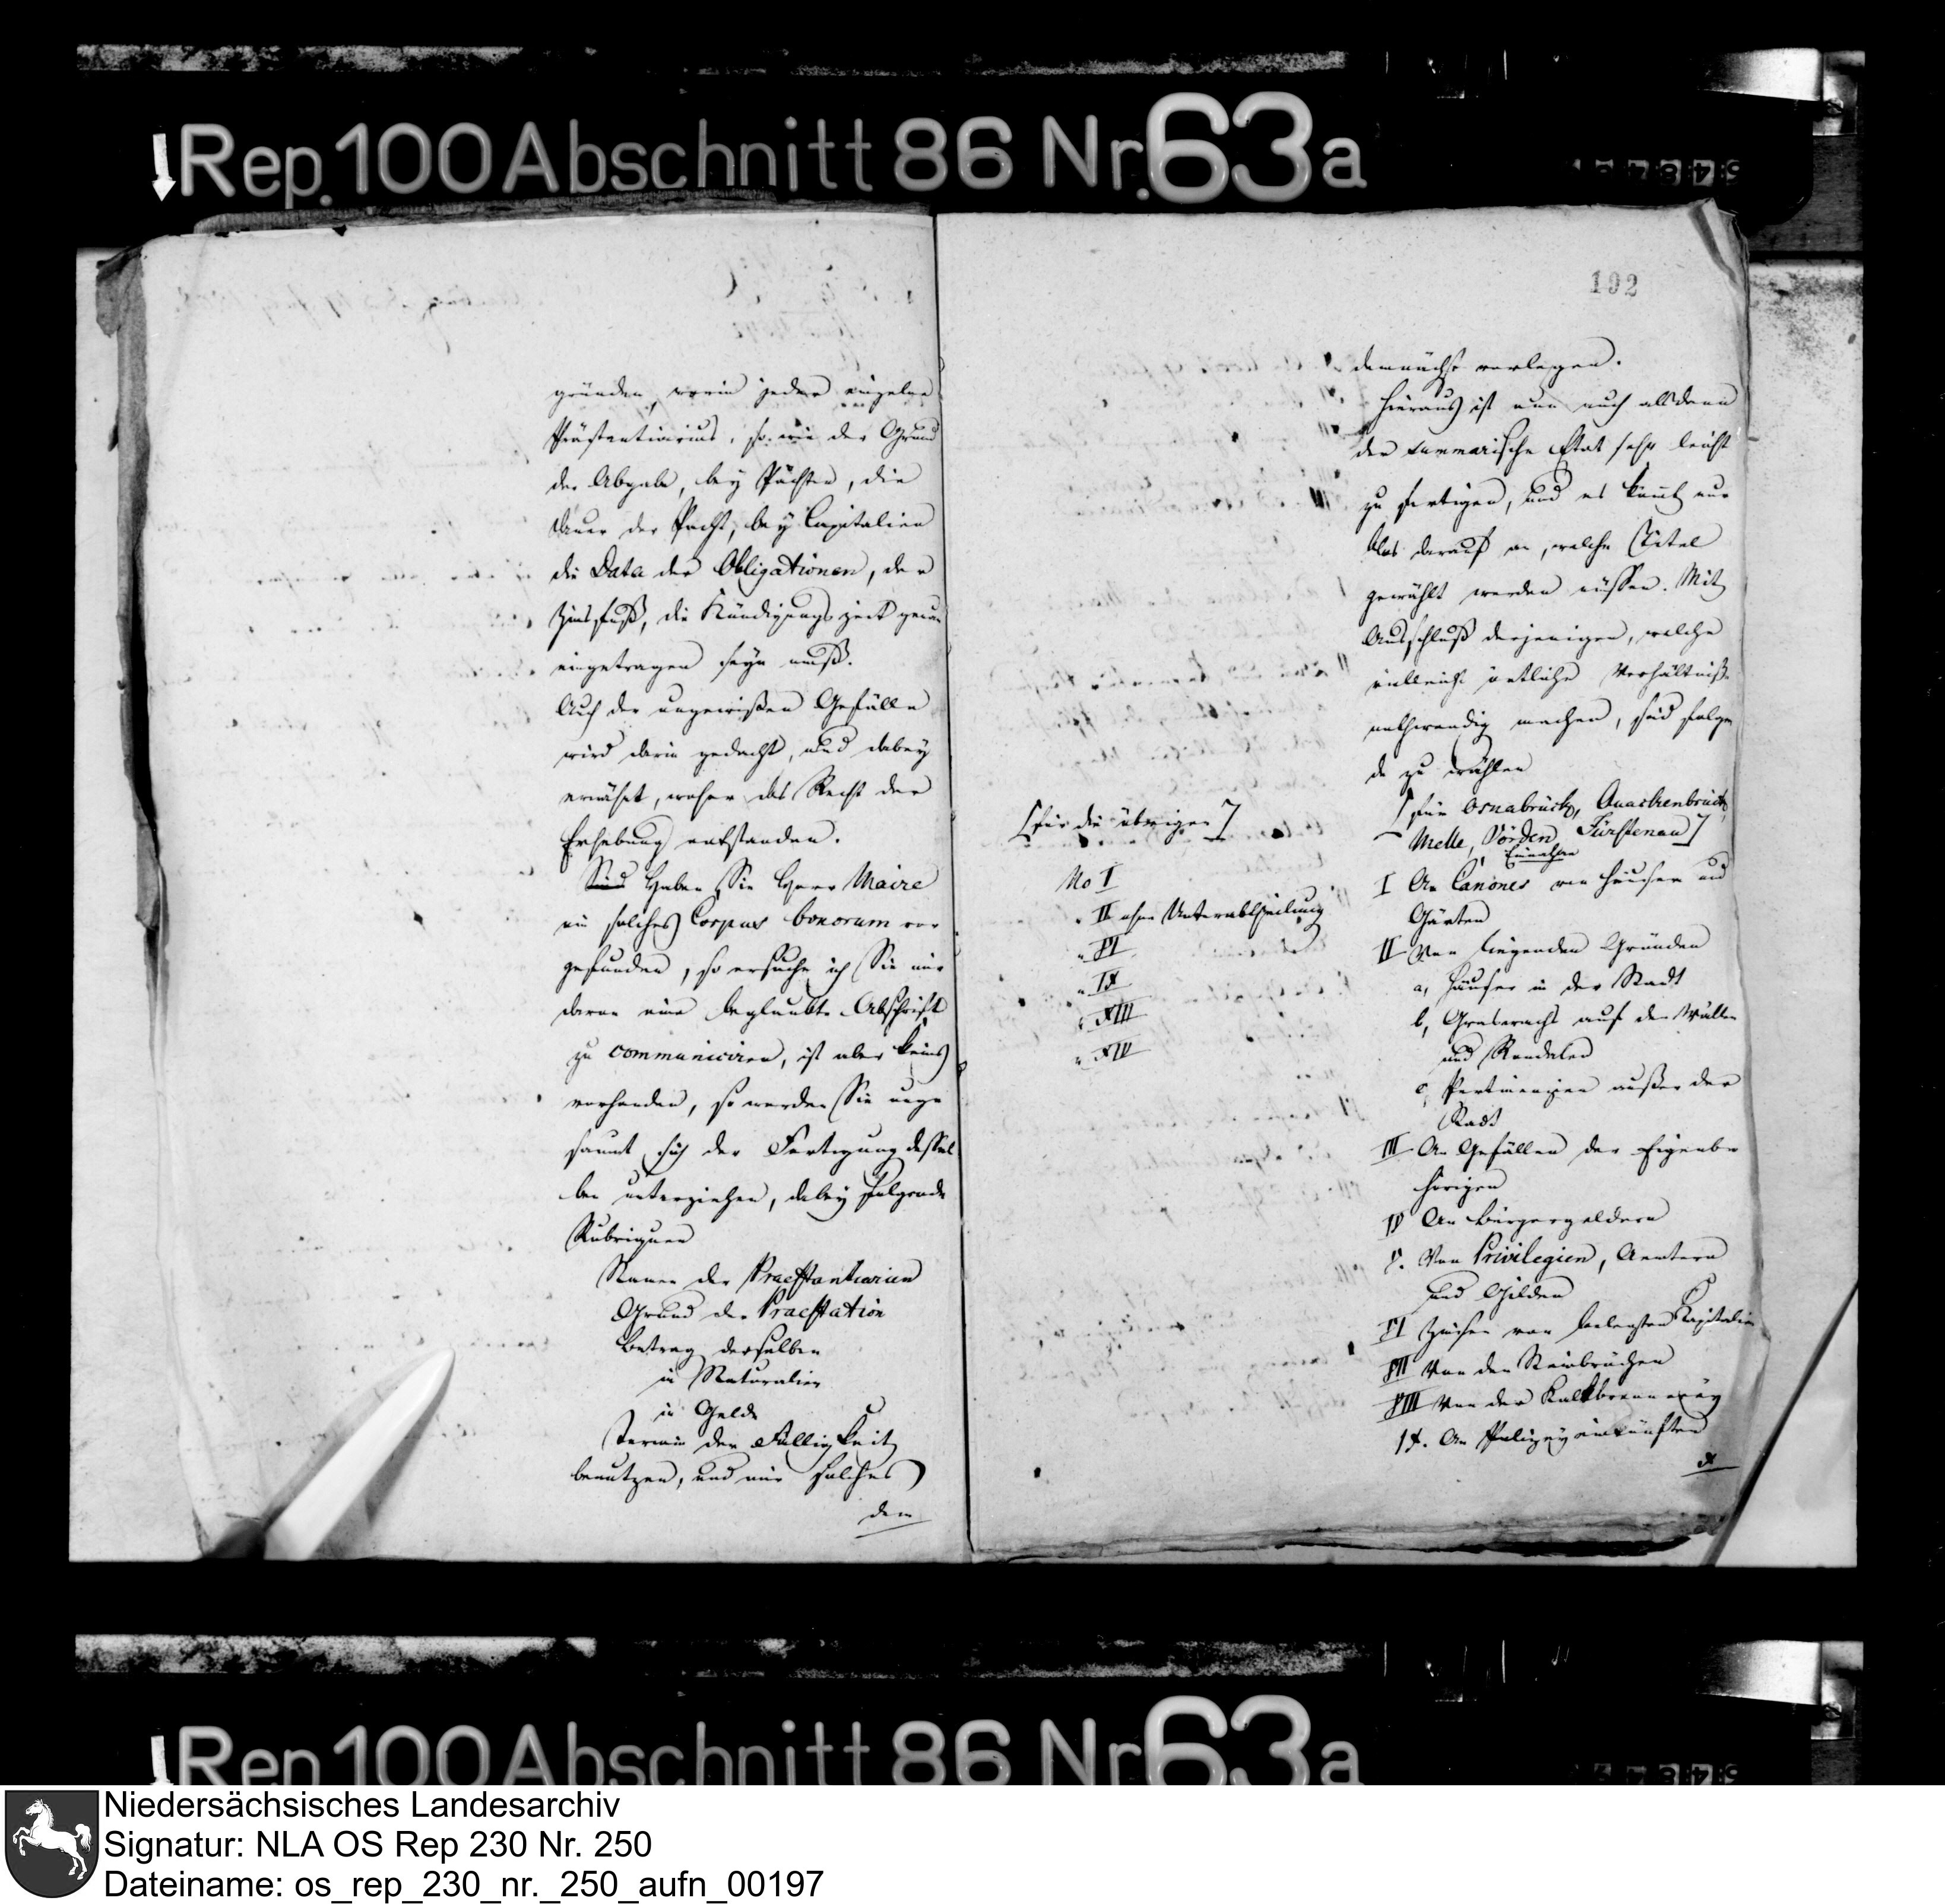 Rep. 100 Abschnitt 86 Nr. 63a
gründen, worin jeder einzelne
Prästantiarius, so wie der Grund
der Abgabe, bey Pächten, die
Dauer der Pacht, bey Capitalien
die Data der Obligationen, der
Zinsfuß, die Kündigungszeit genau
eingetragen seyn muß.
Auch der ungewißen Gefälle
wird darin gedacht, und dabey
erwähnt, woher das Recht der
Erhebung entstanden.
Haben Sie Herr Maire
ein solches Corpus bonorum vor
gefunden, so ersuche ich Sie mir
davon eine beglaubte Abschrift
zu communiciren, ist aber keins
vorhanden, so werden Sie unge
säumt sich der Fertigung dessel
ben unterziehen, dabey folgende
Rubriquen
Namen der Praestantiarien
Grund der Praestation
Betrag derselben
in Naturalien
in Gelde
Termin der Fälligkeit
benutzen, und mir solches
dem
102
demnächst vorlegen.
Hieraus ist nun auch alsdann
der summarische Etat sehr leicht
zu fertigen, und es kömt nur
blos darauf an, welche Titel
gewählt werden müssen. Mit
Ausschluß derjenigen, welche
vielleicht örtliche Verhältniße
nothwendig machen, sind folgen
de zu wählen
[für die übrigen]
No I
" II ohne Unterabtheilung
" VI
" IX
" XIII
" XIV
[für Osnabrück, Quackenbrück,
Melle, Vörden, Fürstenau]
Einnahme
I An Canones von Häusern und
Gärten
II Von liegenden Gründen
a, Häuser in der Stadt
b, Graswachs auf den Wällen
und Rondelen
c, Pertinenzien außer der
Stadt
III An Gefällen der Eigenbe
hörigen
IV An Bürgergeldern
V. Von Privilegien, Aemtern
und Gilden
VI Zinsen von belegten Kapitalien
VII Von den Steinbrüchen
VIII Von der Kalkbrennerey
IX. An Polizeyeinkünften
X
Rep. 100 Abschnitt 86 Nr. 63a
Niedersächsisches Landesarchiv
Signatur: NLA OS Rep 230 Nr. 250
Dateiname: os_rep_230_nr._250_aufn_00197